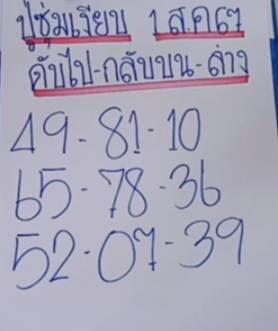 ปู่ชุ่มเงียบ 1 ส.ค 67
ดับไป-กลับบน-ล่าง
49-81-10
65-78-36
52-07-39